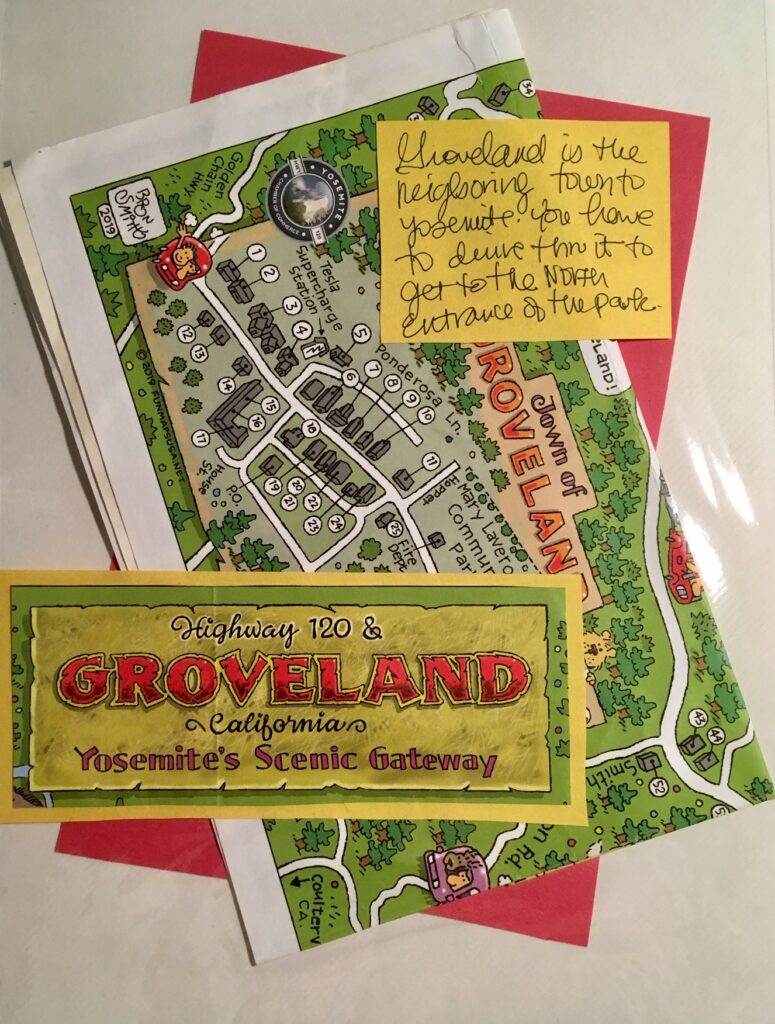 Groveland is the
neigboring town to
yosemite. You have
to drive thru it to
get to the North
entrance of the park.
Golden
Chain
Hwy.
BRON
SMITH©
2019
YOSEMITE
CHAMBER OF COMMERCE
HWY
120
Tesla
Supercharge
Station
1
2
3
4
5
6
7
8
9
10
11
12
13
14
15
16
17
18
19
20
21
22
23
24
25
Ponderosa Ln.
House St.
P.O.
Hopper
Mary Lavero
Commun
Par
Fire
Dep
© 2019 FUNMAPSUSA.NET
Town of
GROVELAND
ELAND!
54
43
44
52
Smith
on Rd.
Coulterv
CA.
Highway 120 &
GROVELAND
California
Yosemite's Scenic Gateway